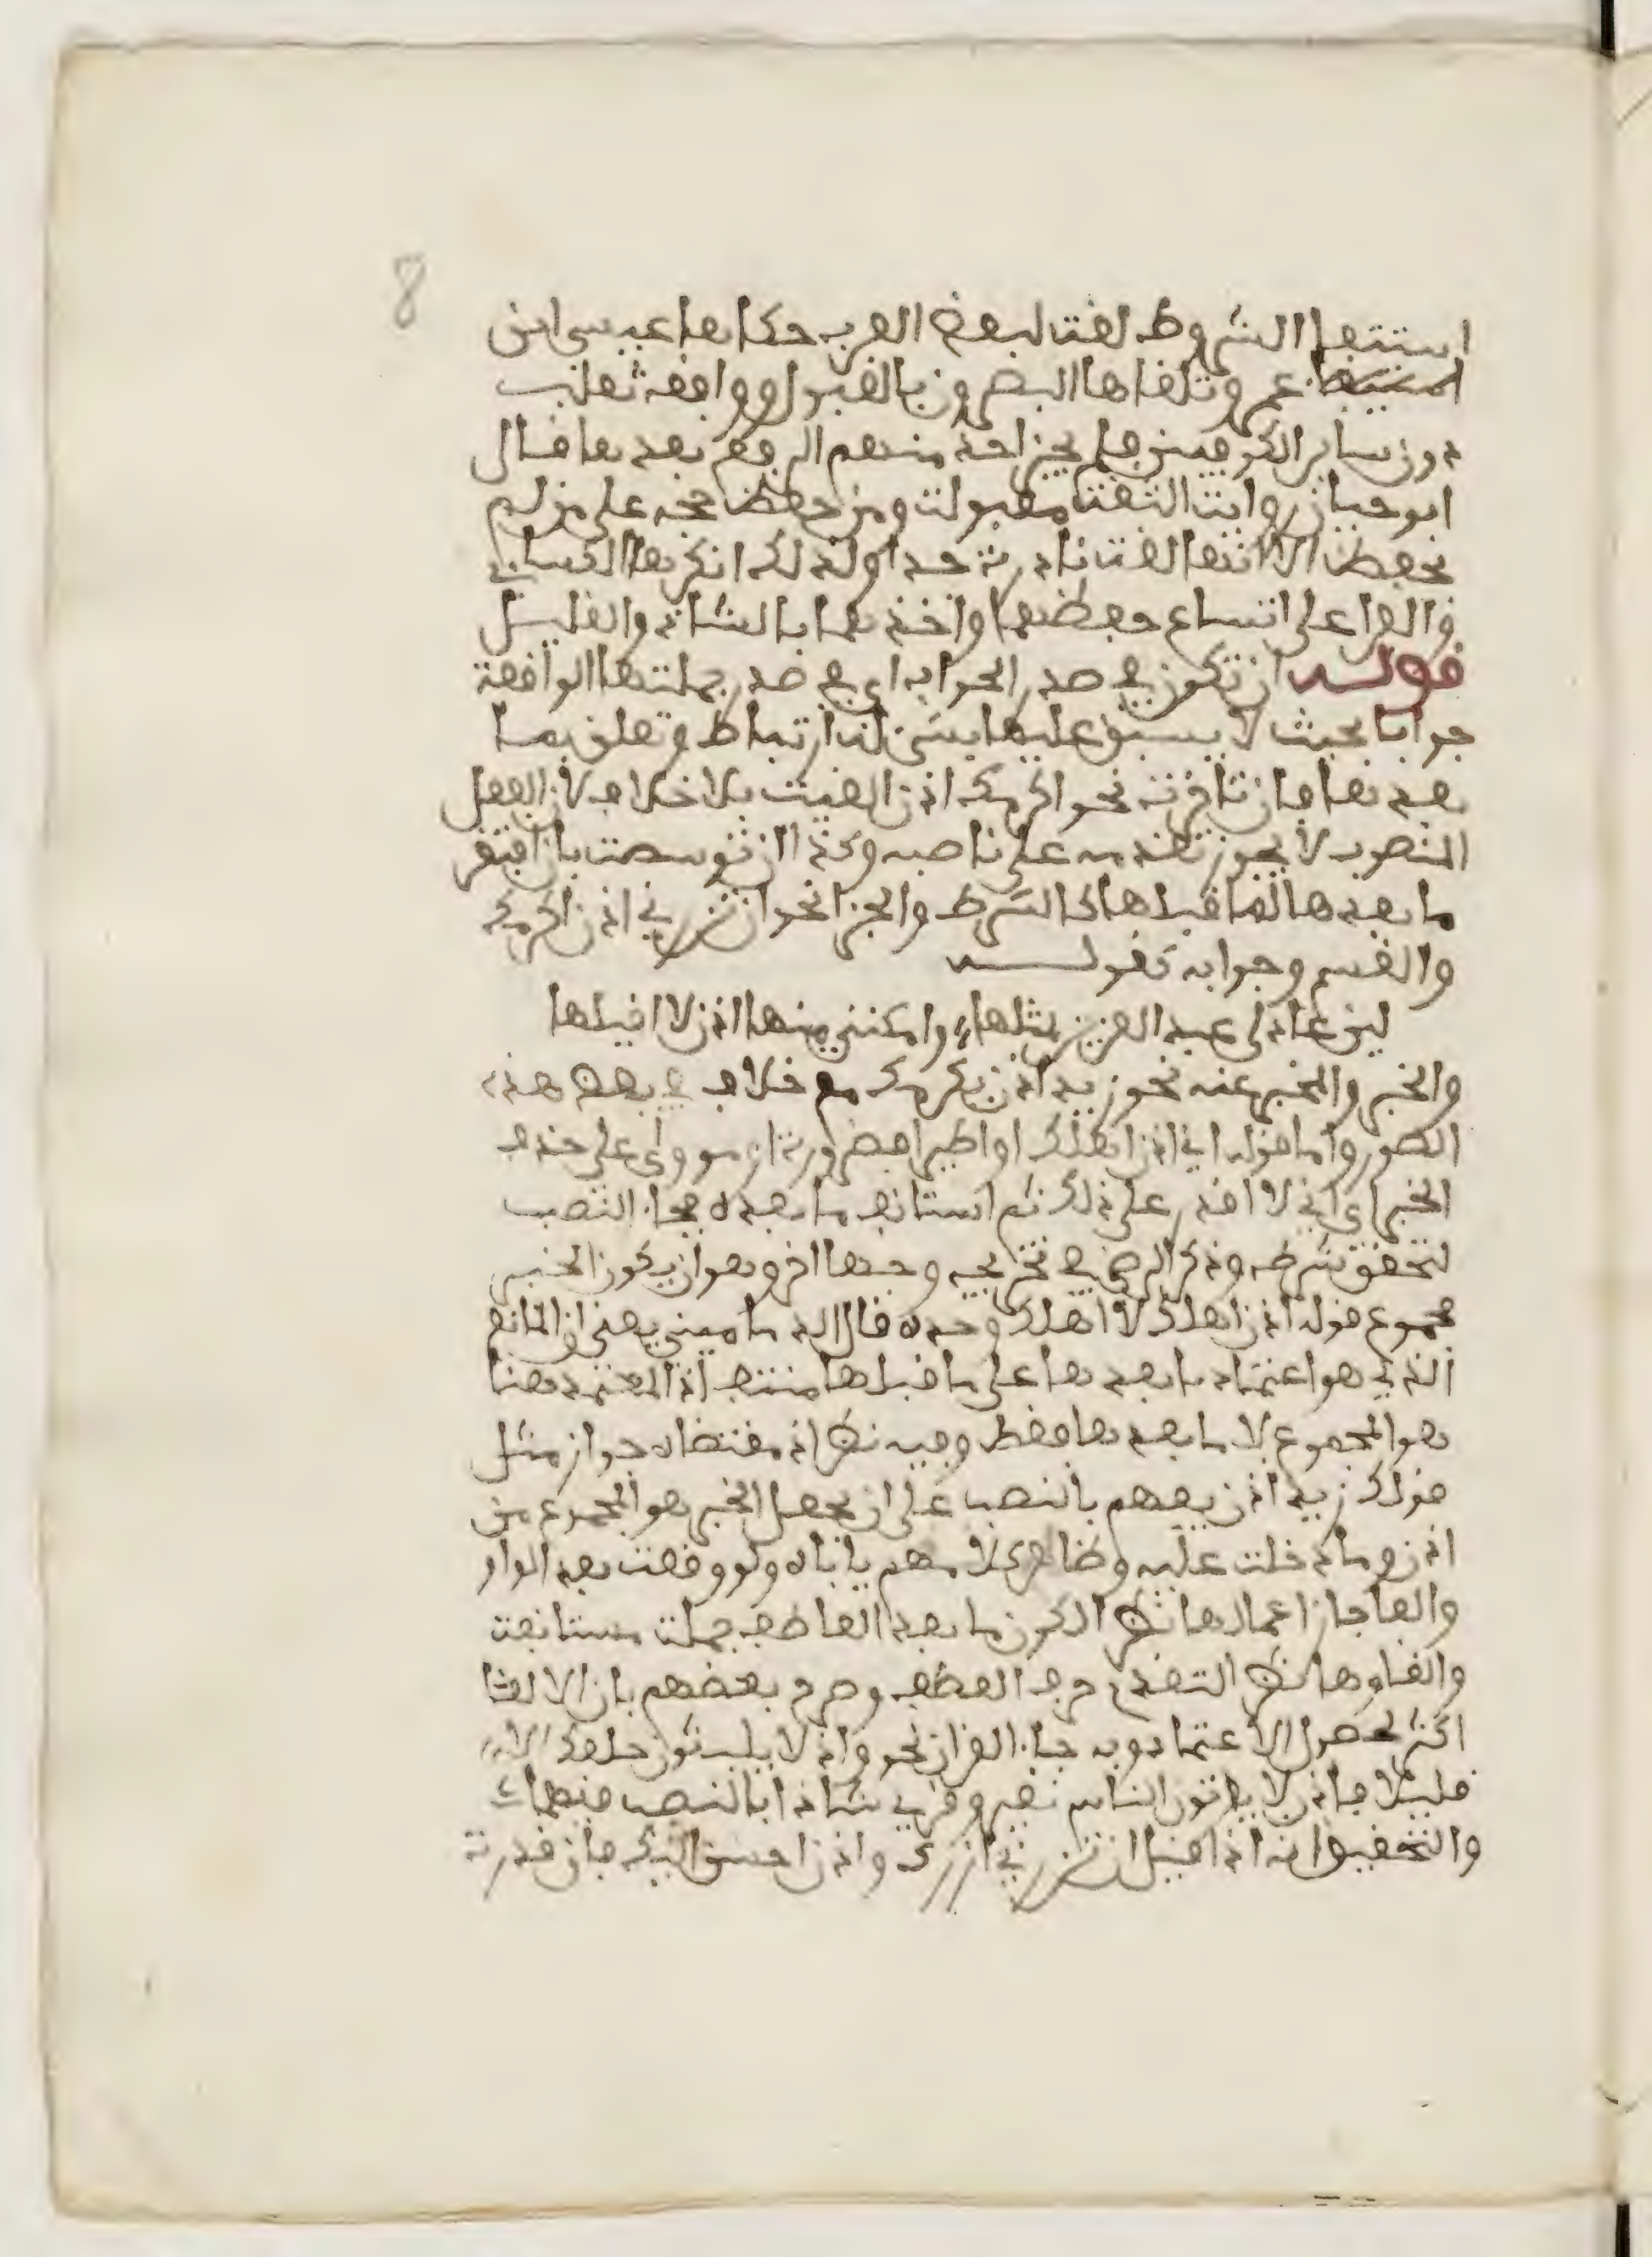 8
استيفاء الشروط لغة لبعض العرب حكاها عيسى ابن
عمر وتلقاها البصريون بالقبول ووافقه ثعلب
دون ساير الكوفيين فلم يجز احد منهم الرفع بعدها قال
ابو حيان رواية الثقة مقبولة ومن حفظ حجة على من لم
يحفظ الا انها لغة نادرة جدا ولذلك انكرها الكساي
والفرا على اتساع حفظهما واخذهما بالشاذ والقليل
قوله ان تكون في صدر الجواب اي في صدر جملتها الواقعة
جوابا بحيث لا يسبق عليها شيء له ارتباط وتعلق بما
بعدها فان تاخرت نحو اكرمك اذن الغيت بلا خلاف لان الفعل
المنصوب لا يجوز تقديمه على ناصبه وكذا ان توسطت بان افتقر
ما بعدها لما قبلها كالشرط والجزا نحو ان تزرني اذن اكرمك
والقسم وجوابه كقوله
لين عاد لي عبد العزيز بمثلها وامكنني منها اذن لا اقيلها
والخبر والمخبر عنه نحو زيد اذن يكرمك مع خلاف في بعض هذه
الصور واما قوله اني اذن اهلك او اطيرا فضرورة او موول على حذف
الخبر اي اني لا اقدر على ذلك ثم استانف ما بعده فجاء النصب
لتحقق شرطه وذكر الرضي في تخريجه وجها اخر وهو ان يكون الخبر
مجموع قوله اذن اهلك لا اهلك وحده قال الدماميني يعني ان المانع
الذي هو اعتماد ما بعدها على ما قبلها منتف اذ المعتمد هنا
هو المجموع لا ما بعدها فقط وفيه نظر اذ مقتضاه جواز مثل
قولك زيد اذن يفهم بالنصب على ان يجعل الخبر هو المجموع من
اذن وما دخلت عليه وظاهر كلامهم ياباه ولو وقعت بعد الواو
والفا جاز اعمالها نظرا لكون ما بعد العاطف جملة مستانفة
والغاوها نظرا لتقدم حرف العطف وصرح بعضهم بان الالغا
اكثر لحصول الاعتماد وبه جاء القران نحو واذ لا يلبثون خلفك الا
قليلا فاذن لا يوتون الناس نقيرا وقري شاذا بالنصب فيهما
والتحقيق انه اذا قيل ان تزرني ازرك واذن احسن اليك فان قدرت